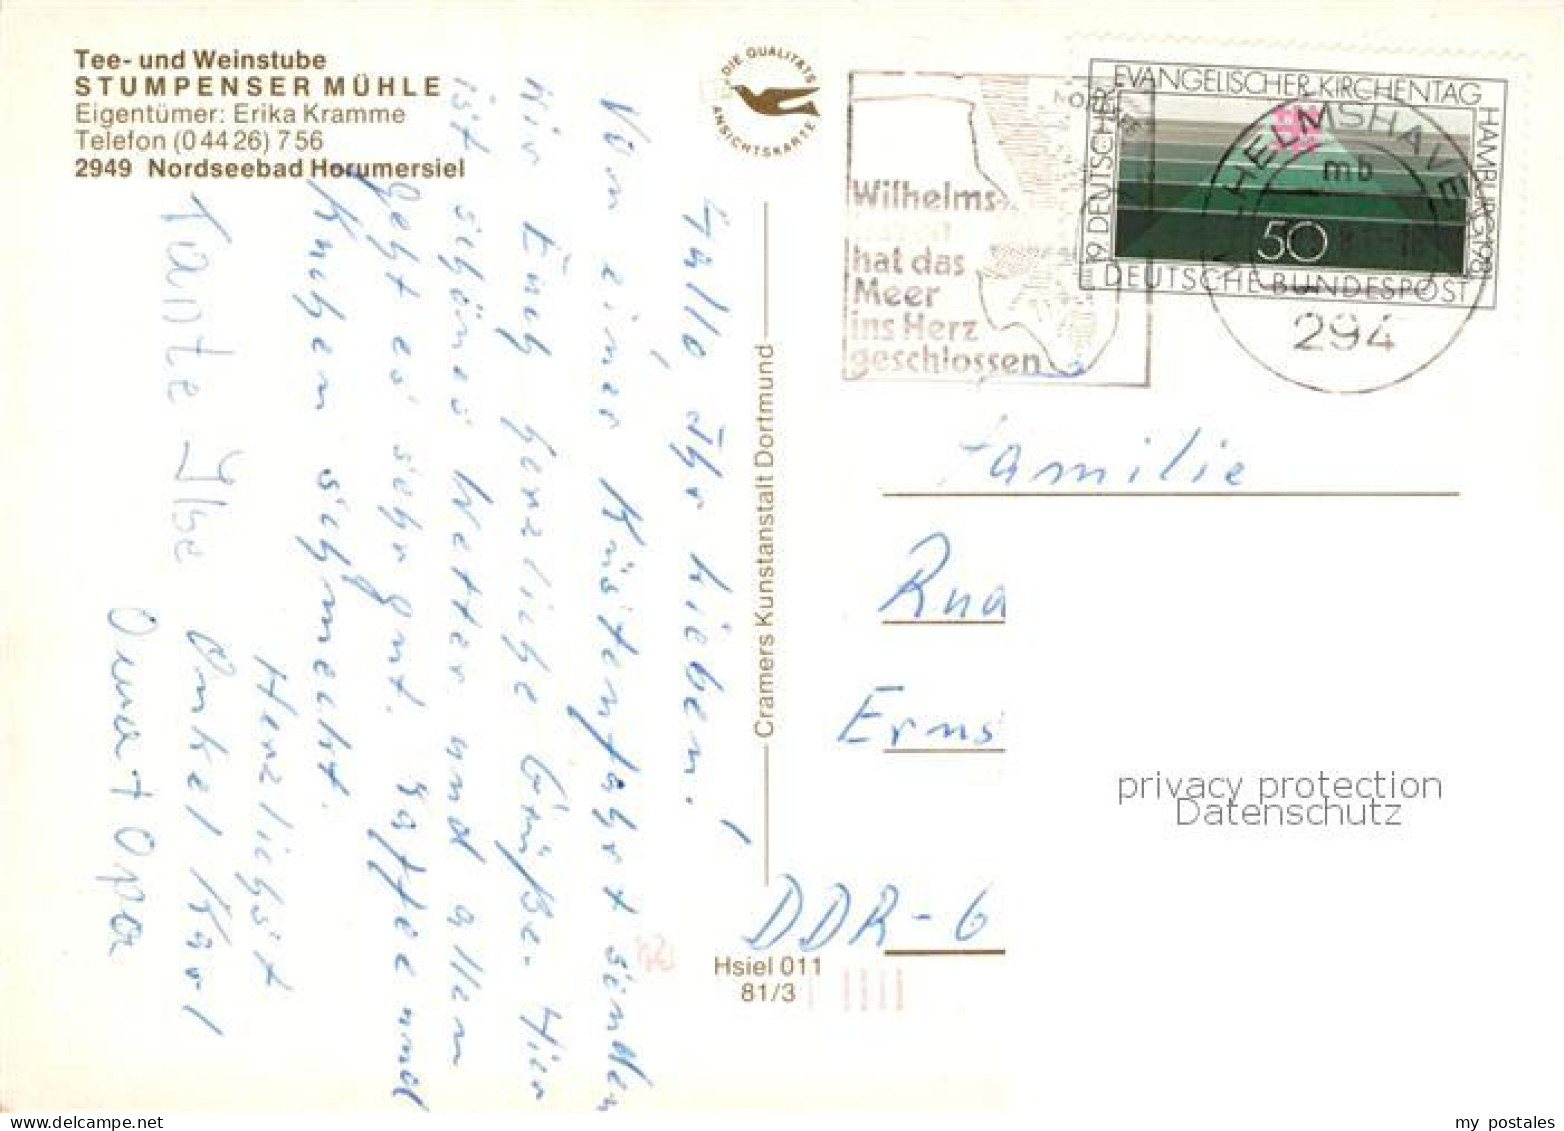 Tee- und Weinstube
STUMPENSER MÜHLE
Eigentümer: Erika Kramme
Telefon (0 44 26) 7 56
2949 Nordseebad Horumersiel
DIE QUALITÄTS
ANSICHTSKARTE
Hallo, Ihr Lieben!
Von einer Küstenfahrt senden
wir Euch herzliche Grüße. Hier
ist schönes Wetter und allen
geht es sehr gut. Kaffee und
Kuchen schmeckt.
Herzlichst
Tante Ilse Onkel Karl
Oma + Opa
Cramers Kunstanstalt Dortmund
Hsiel 011
81/3
Wilhelms-
hat das
Meer
ins Herz
geschlossen
19. DEUTSCHER
EVANGELISCHER KIRCHENTAG
HAMBURG 1981
50
DEUTSCHE BUNDESPOST
mb
294
Familie
Rud
Erns
DDR-6
privacy protection
Datenschutz
my postales